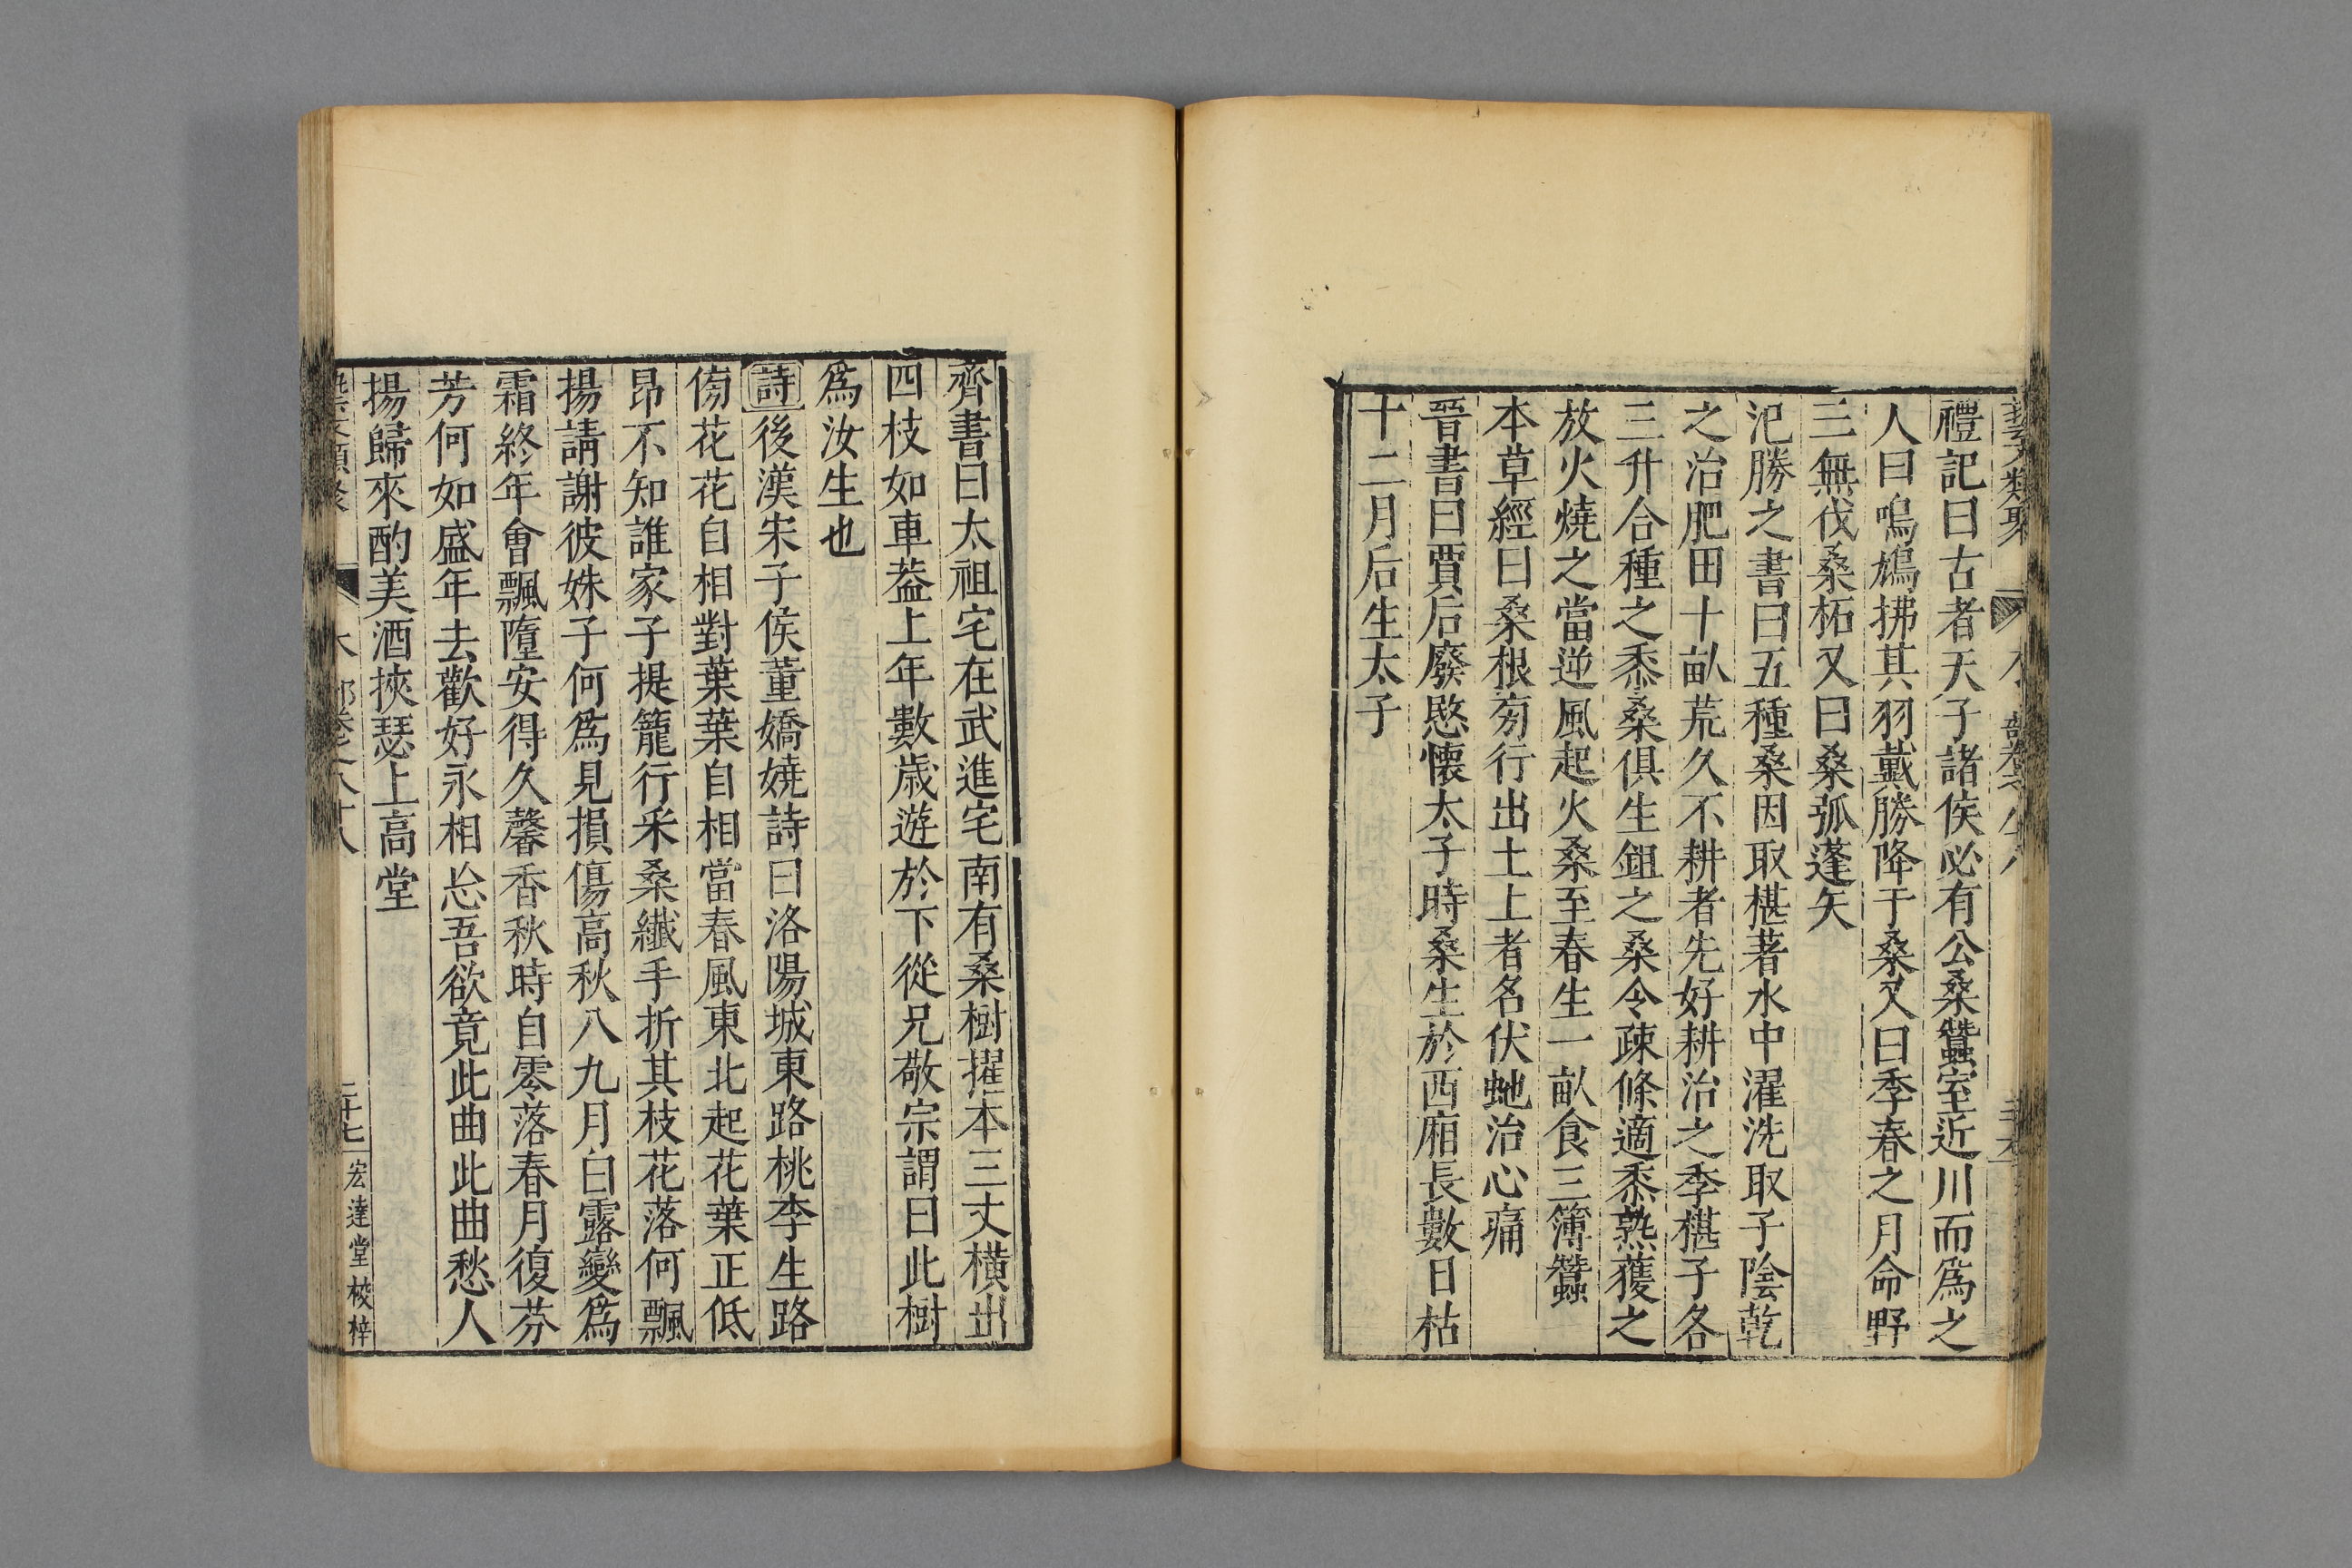 藝文類聚
禮記曰古者天子諸侯必有公桑蠶室近川而爲之
人曰鳴鳩拂其羽戴勝降于桑又曰季春之月命野
三無伐桑柘又曰桑弧蓬矢
氾勝之書曰五種桑因取椹著水中濯洗取子陰乾
之治肥田十畝荒久不耕者先好耕治之季椹子各
三升合種之黍桑俱生鉏之桑令疎條適黍熟穫之
放火燒之當逆風起火桑至春生一畝食三簿蠶
本草經曰桑根旁行出土上者名伏虵治心痛
晉書曰賈后廢愍懷太子時桑生於西廂長數日枯
十二月后生太子
齊書曰太祖宅在武進宅南有桑樹擢本三丈橫出
四枝如車葢上年數歲遊於下從兄敬宗謂曰此樹
爲汝生也
詩後漢宋子侯董嬌嬈詩曰洛陽城東路桃李生路
傍花花自相對葉葉自相當春風東北起花葉正低
昂不知誰家子提籠行采桑纖手折其枝花落何飄
揚請謝彼姝子何爲見損傷高秋八九月白露變爲
霜終年會飄墮安得久馨香秋時自零落春月復芬
芳何如盛年去歡好永相忘吾欲竟此曲此曲愁人
揚歸來酌美酒挾瑟上高堂
二十七 宏達堂校梓